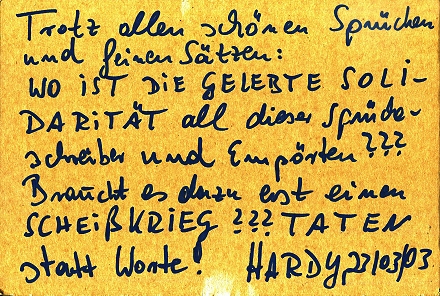 Trotz allen schönen Sprüchen
und feinen Sätzen:
WO IST DIE GELEBTE SOLI-
DARITÄT all dieser Sprüche-
schreiber und Empörten???
Braucht es dazu erst einen
SCHEIßKRIEG??? TATEN
statt Worte! HARDY, 23/03/03